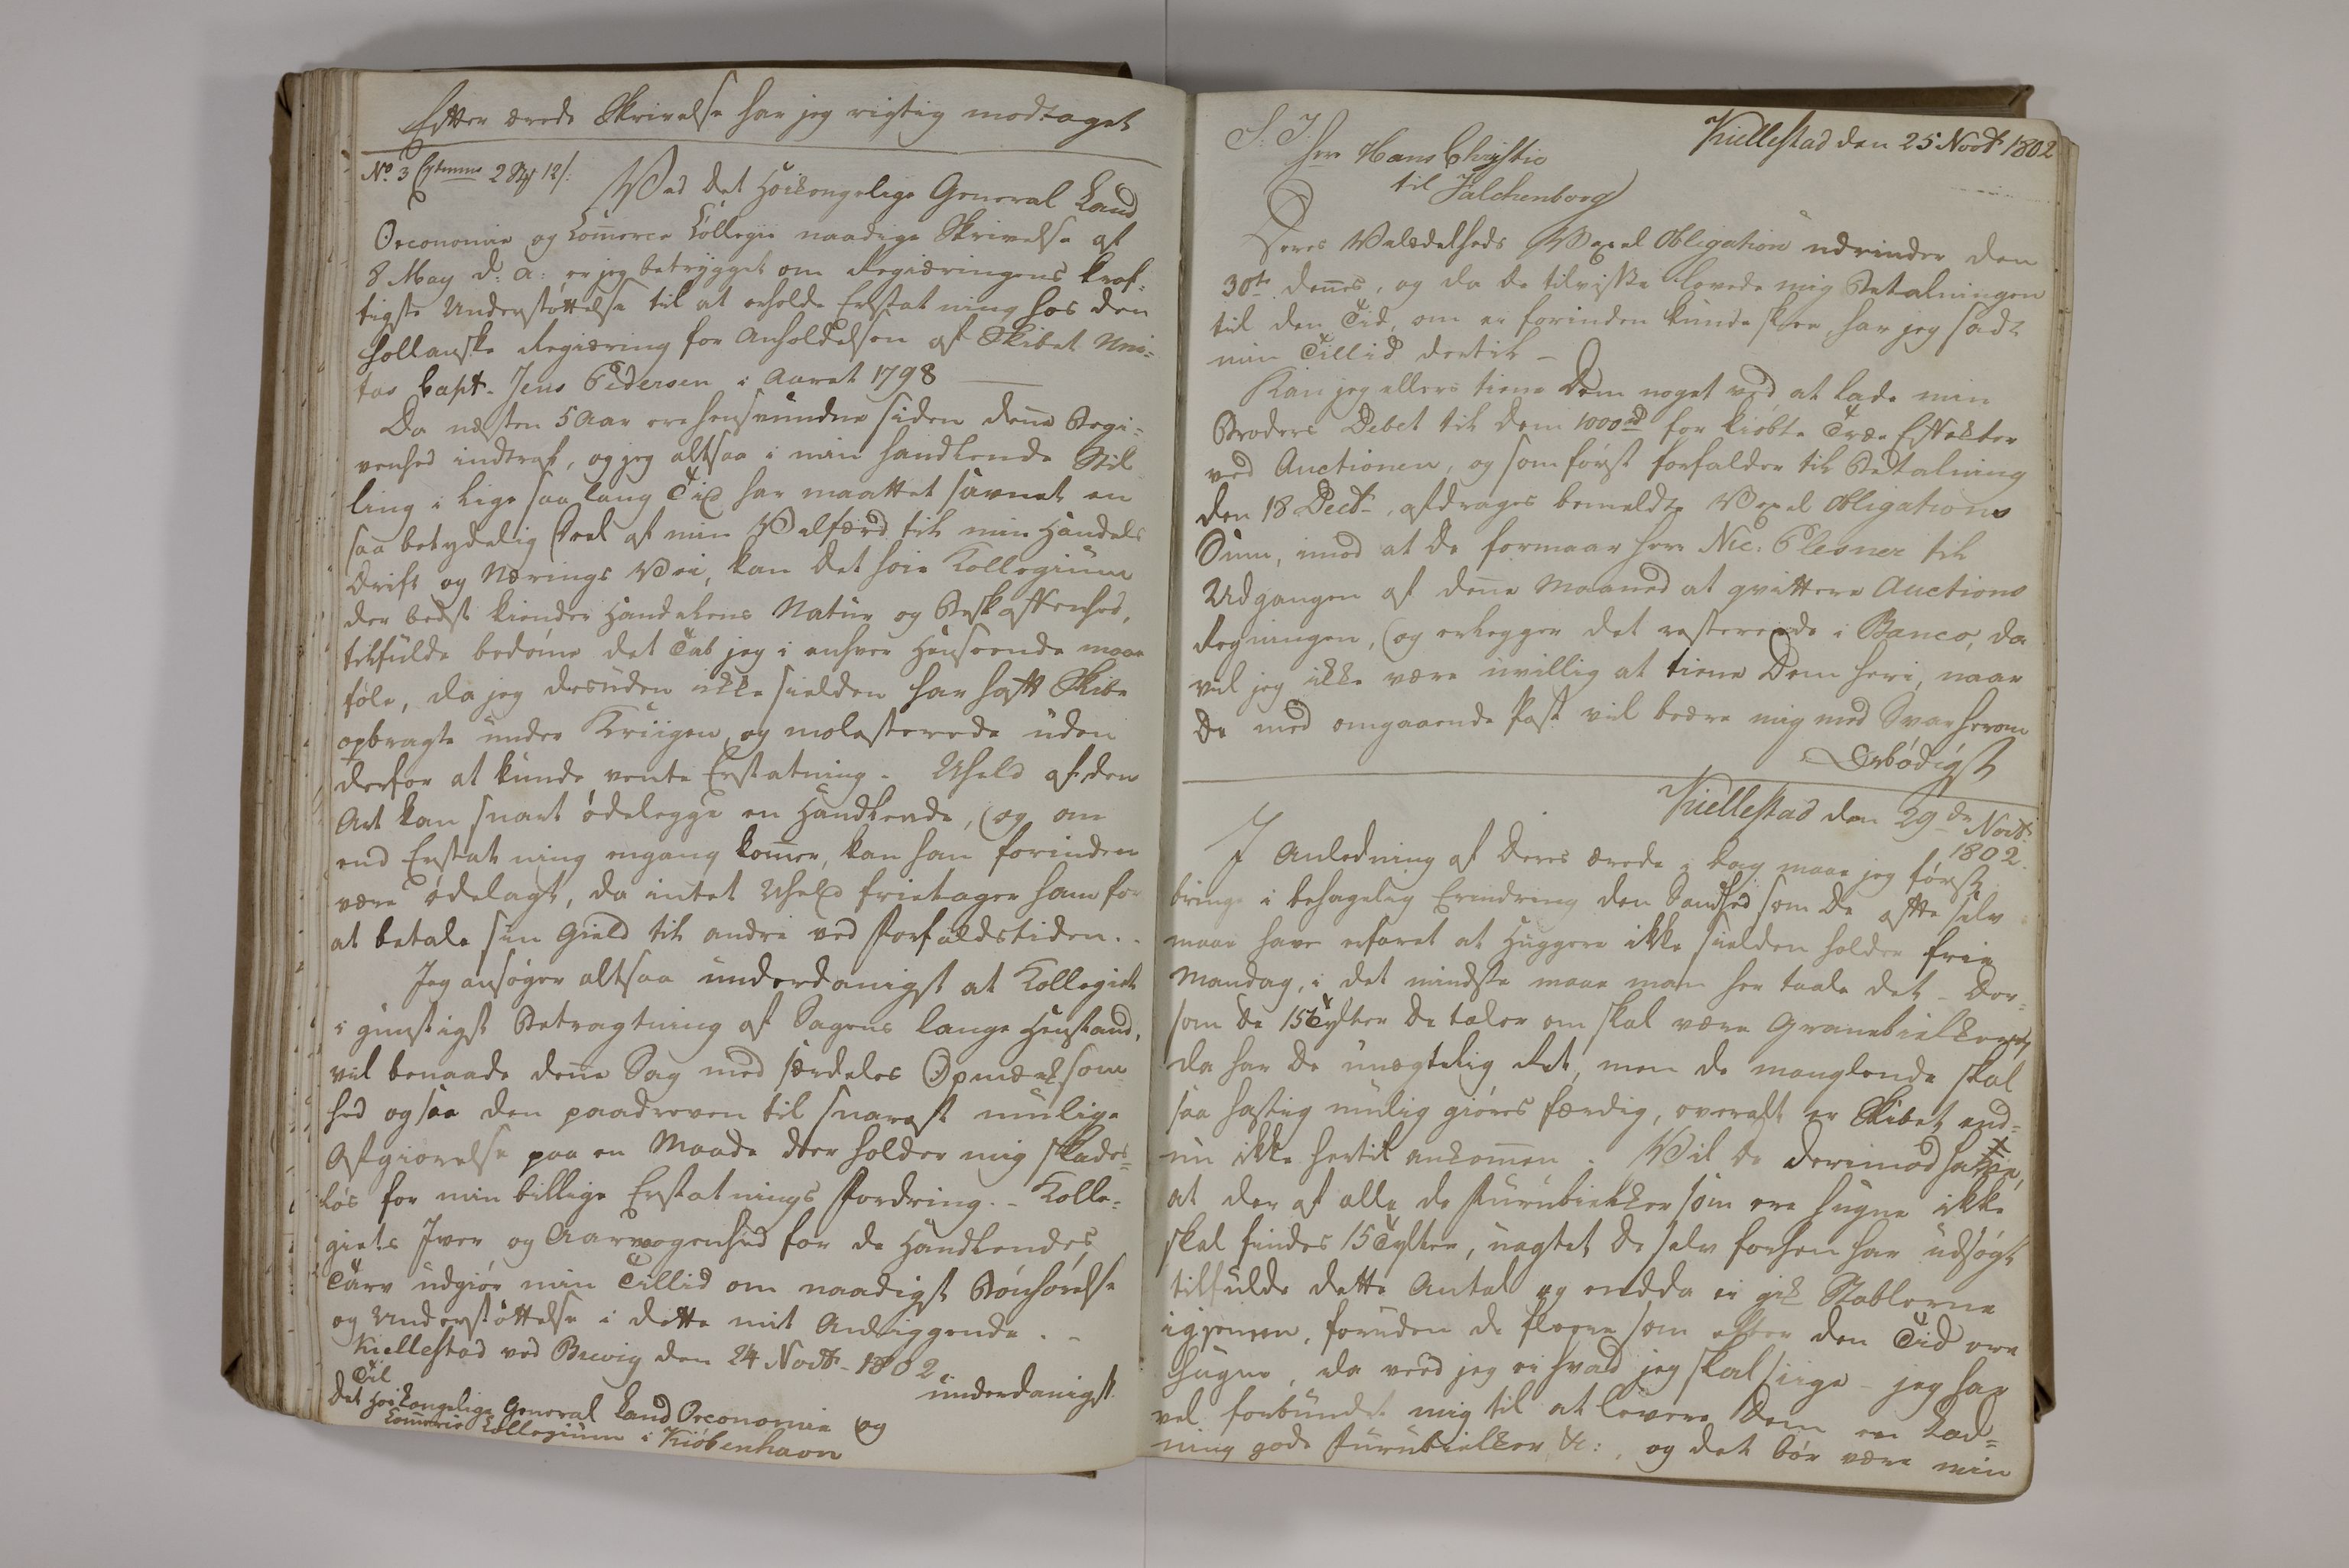 Efter ærede Skrivelse har jeg rigtig modtaget
No. 3 2 12/.
Ved det Høikongelige General Land
Oeconomie og Com̅erce Collegii naadige Skrivelse af
8 May d: a: er jeg betrygget om Regieringens kraf=
tigste Understøttelse til at erholde Erstatning hos den
hollanske Regiering for Anholdelsen af Skibet Uni=
tas Capt. Jens Pedersen i Aaret 1798
Da næsten 5 Aar ere hensvundne siden den̅e Begi=
venhed indtraf, og jeg altsaa i min handlende Stil
ling i lige saa lang Tid har maattet savnet en
saa betydelig Deel af min Velfærd til min Handels
Drift og Nærings Vei, kan det høie Kollegium
der bedst kiender Handelens Natur og Beskaffenhed,
tilfulde bedøm̅e det Tab jeg i enhver Henseende maae
føle, da jeg desuden ikke sielden har haft Skibe
opbragte under Kriigen, og molesterede uden
derfor at kunde vente Erstatning. Uheld af den
Art kan snart ødelegge en Handlende, og om
end Erstatning engang kom̅er, kan han forinden
være ødelagt, da intet Uheld frietager ham for
at betale sin Gield til andre ved Forfaldstiden.
Jeg ansøger altsaa underdanigst at Kollegiet
i gunstigst Betragtning af Sagens lange Henstand,
vil benaade den̅e Sag med særdeles Opmærksom=
hed og saa den paadreven til snarest mulige
Afgiørelse paa en Maade der holder mig skades=
løs for min billige Erstatnings Fordring. - Kolle=
giets Iver og Aarvaagenhed for de Handlendes
Tarv udgiør min Tillid om naadigst Bønhørelse
og Understøttelse i dette mit Anliggende. -
Kiellestad ved Brevig den 24 Novbr. 1802
underdanigst
Til
Det Høikongelige General Land Oeconomie og
Com̅erce Collegium i Kiøbenhavn
Kiellestad den 25 Novbr 1802
S. T. Herr Hans Christie
til Falchenborg
Deres Velædelheds Vexel Obligation udrinder den
30te den̅es, og da De tilvisse lovede mig Betalningen
til den Tid, om ei forinden kunde skee, har jeg sadt
min Tillid dertil -
Kan jeg ellers tiene Dem noget ved at lade min
Broders Debet til Dem 1000 rd for kiøbte Træe Effekter
ved Auctionen, og som først forfalder til Betalning
den 18 Decbr, afdrages bemeldte Vexel Obligations
Sum, imod at De formaar Herr Nic: Plesner til
Udgangen af den̅e Maaned at qvittere Auctions
Regningen, og erlegger det resterende i Banco, da
vil jeg ikke være uvillig at tiene Dem heri, naar
De med omgaaende Post vil beære mig med Svar herom
Ærbødigst
Kiellestad den 29de Novbr.
1802.
I Anledning af Deres ærede i Dag maae jeg først
bringe i behagelig Erindring den Sandhed som De ofte selv
maae have erfaret at Huggere ikke sielden holder frie
Mandag, i det mindste maae man her taale det - Der=
som de 15 Tylter De taler om skal være Granebielker,
da har De unægtelig Ret, men de manglende skal
saa hastig mulig giøres færdig, overalt er Skibet end=
nu ikke hertil ankom̅en. Vil De derimod
at der af alle de Furubielker som ere hugne ikke
skal findes 15 Tylter, uagtet De selv forhen har udsøgt
tilfulde dette Antal og endda ei gik Stablerne
igjen̅em, foruden de fleere som efter den Tid ere
hugne, da veed jeg ei hvad jeg skal siige - jeg har
vel forbundet mig til at levere Dem en Lad=
ning gode Furubielker &c:, og det bør være min